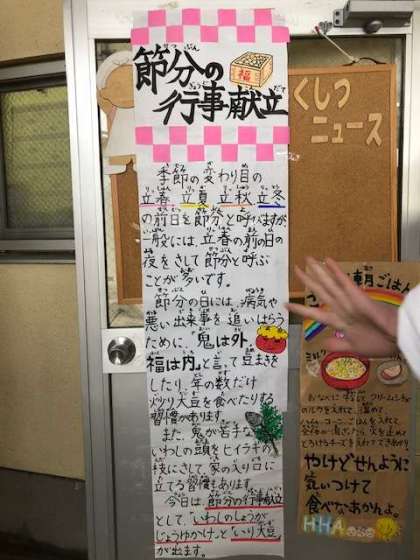 節分の
行事献立
福
季節の変わり目の
立春、立夏、立秋、立冬
の前日を節分と呼びますが、
一般には、立春の前の日の
夜をさして節分と呼ぶ
ことが多いです。
節分の日には、病気や
悪い出来事を追いはらう
ために、『鬼は外、
福は内』と言って豆まきを
したり、年の数だけ
炒り大豆を食べたりする
習慣があります。
また、鬼が苦手な
いわしの頭をヒイラギの
枝にさして、家の入り口に
立てる習慣もあります。
今日は、節分の行事献立
として、「いわしのしょうが
じょうゆかけ」と「いり大豆」
が出ます。
くしつ
ニュース
朝ごはん
ミルク
やけどせんように
気いつけて
食べなあかんよ。